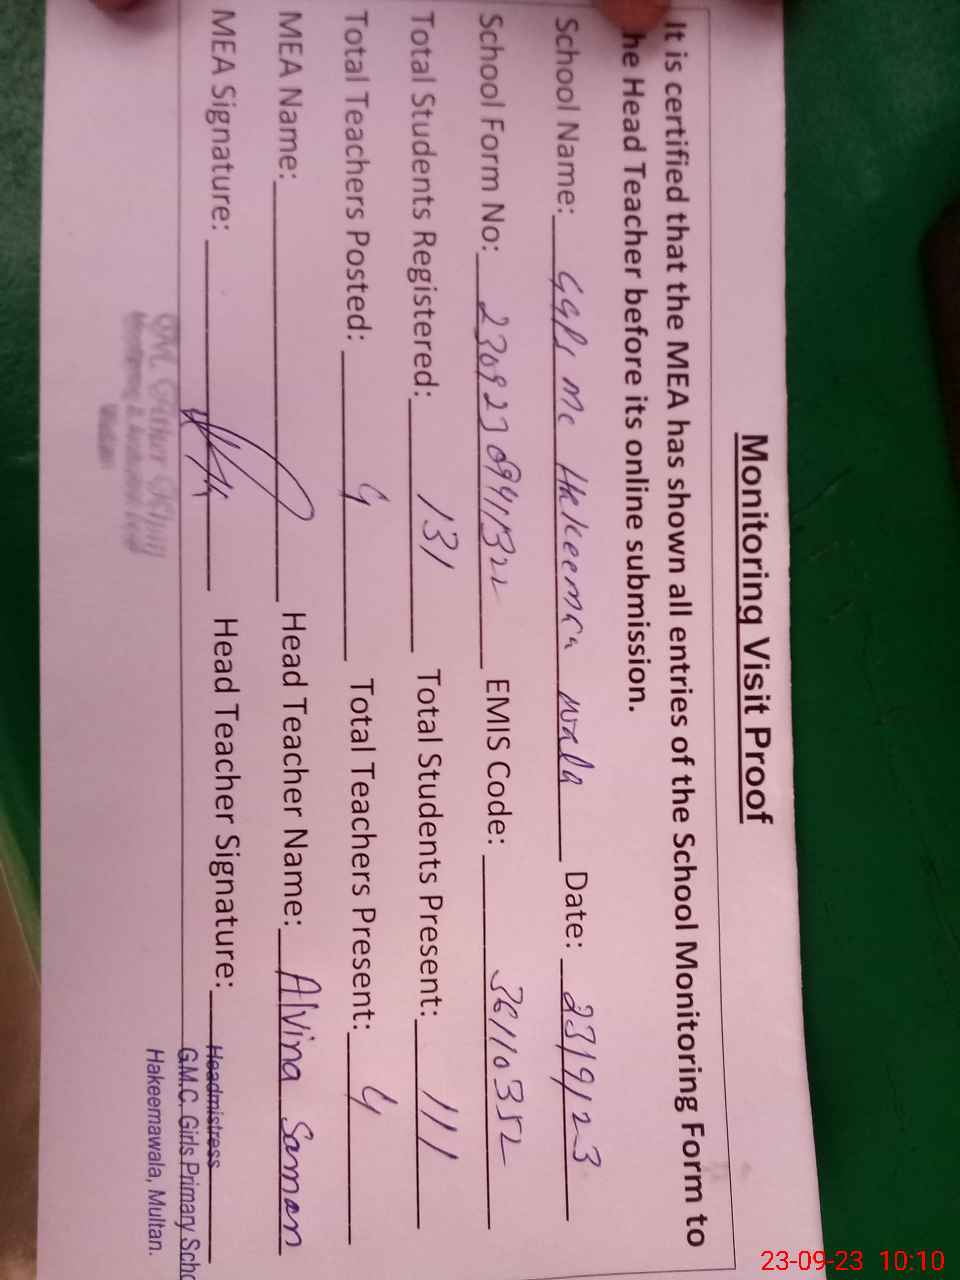 Monitoring Visit Proof
It is certified that the MEA has shown all entries of the School Monitoring Form to
he Head Teacher before its online submission.
School Name: GGPS MC Hakeeman wala Date: 23/9/23
School Form No: EMIS Code: 36110352
Total Students Registered: 131 Total Students Present: 111
Total Teachers Posted: 4 Total Teachers Present: 4
MEA Name: Head Teacher Name: Alvina Saman
MEA Signature: Head Teacher Signature:
Headmistress
G.M.C. Girls Primary Scho
Hakeemawala, Multan.
23-09-23 10:10